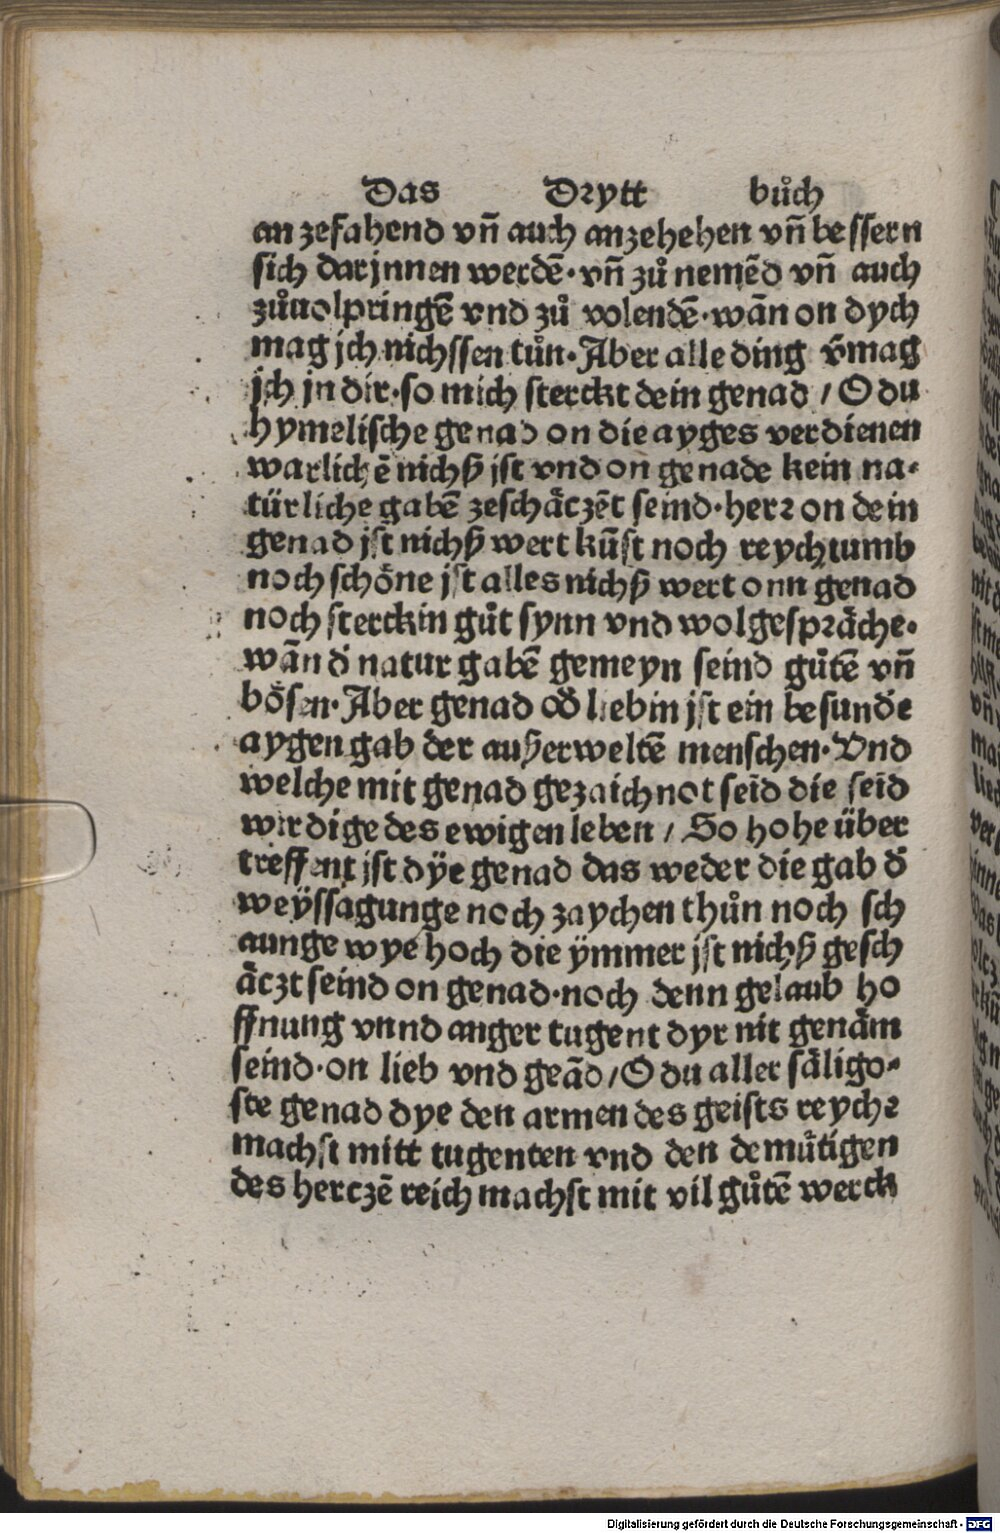 Das Drytt bůch
an zefahend vn̄ auch anzehehen vn̄ bessern
sich darjnnen werdē·vn̄ zů nemēd vn̄ auch
zůuolpringē vnd zů volendē·wān on dych
mag jch nichssen tůn·Aber alle ding v̄mag
jch in dir·so mich sterckt dein genad / O du
hymelische genad on die ayges verdienen
warlichē nichß jst vnd on genade kein na⸗
türliche gabē zeschāczēt seind·herꝛ on dein
genad jst nichß wert kūst noch reychtumb
noch schöne jst alles nichß wert onn genad
noch sterckin gůt synn vnd wolgespꝛäche·
wān d̄ natur gabē gemeyn seind gůtē vn̄
bösen·Aber genad od̄ liebin jst ein besund̄e
aygen gab der außerweltē menschen·Vnd
welche mit genad gezaichnot seīd die seīd
wirdige des ewigen leben / So hohe über
treffent jst dÿe genad das weder die gab d̄
weÿssagunge noch zaychen thůn noch sch
aunge wye hoch die ÿmmer jst nichß gesch
äczt seind on genad·noch denn gelaub ho
ffnung vnnd anger tugent dyr nit genäm
seind·on lieb vnd geād / O du aller säligo⸗
ste genad dye den armen des geists reychꝛ
machst mitt tugenten vnd den demůtigen
des herczē reich machst mit vil gůtē werck
Digitalisierung gefördert durch die Deutsche Forschungsgemeinschaft - DFG